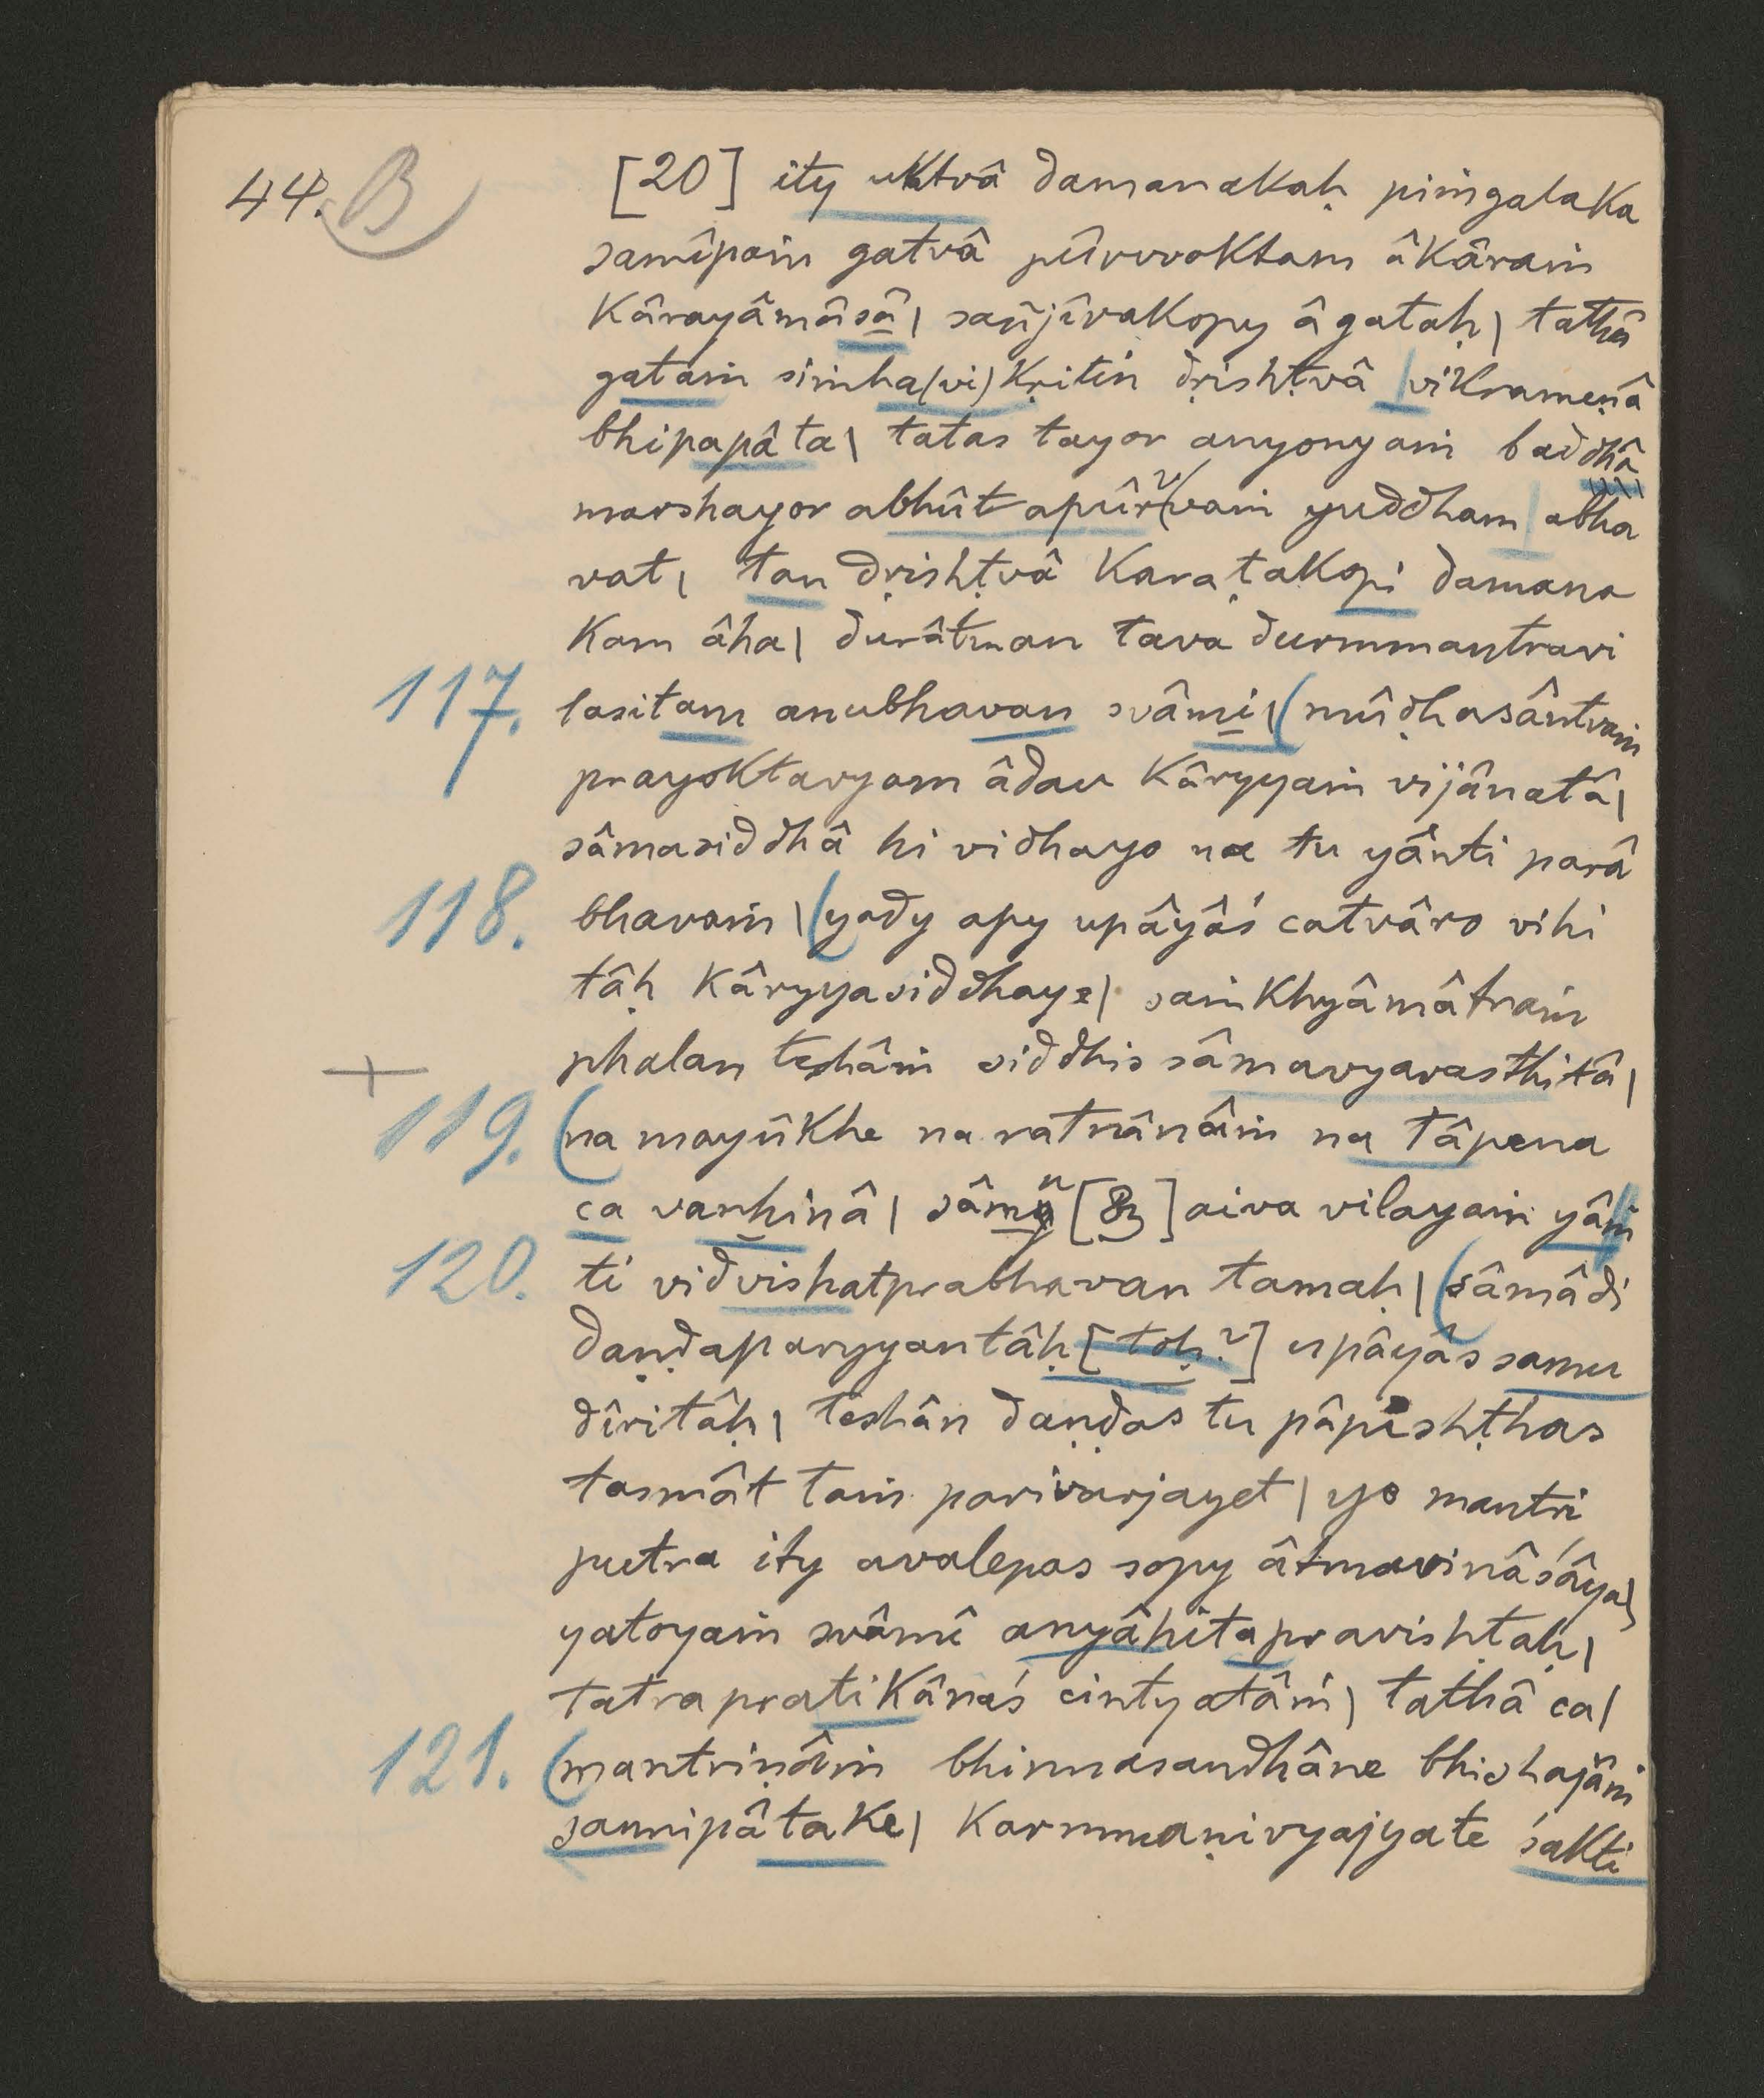 44. B [20] ity uktvâ damanakaḥ piṁgalaka
samîpaṁ gatvâ pûrvvoktam âkâraṁ
kârayâmâsâ| sañjîvakopy âgataḥ| tathâ
gataṁ siṁha(vi)kṛitiṅ dṛishṭvâ |vikrameṇâ
bhipapâta| tatas tayor anyonyaṁ baddhâ
marshayor abhût apûrvvaṁ yuddham| abha
vat| tan dṛishṭvâ karaṭakopi damana
kam âha| durâtman tava durmmantravi
117. lasitam anubhavan svâmi| (mûḍhasântvaṁ
prayoktavyam âdau kâryyaṁ vijânatâ|
sâmasiddhâ hi vidhayo na tu yânti parâ
118. bhavaṁ| (yady apy upâyâś catvâro vihi
tâḥ kâryyasiddhaye| saṁkhyâmâtraṁ
phalan teshâṁ siddhis sâmavyavasthitâ|
+
119. (na mayûkhe na ratnânâṁ na tâpena
ca vanhinâ| sâmn[] aiva vilayaṁ yân
120. ti vidvishatprabhavan tamaḥ| (sâmâdi
daṇḍaparyyantâḥ [toḥ?] upâyâs samu
dîritâḥ| teshân daṇḍas tu pâpishṭhas
tasmât taṁ parivarjayet| yo mantri
putra ity avalepas sopy âtmavinâśâya|
yatoyaṁ svâmî anyâhitapravishṭaḥ|
tatra pratikânaś cintyatâṁ| tathâ ca|
121. (mantriṇâṁ bhinnasandhâne bhishajâṁ
sannipâtake| karmmaṇi vyajyate śakti